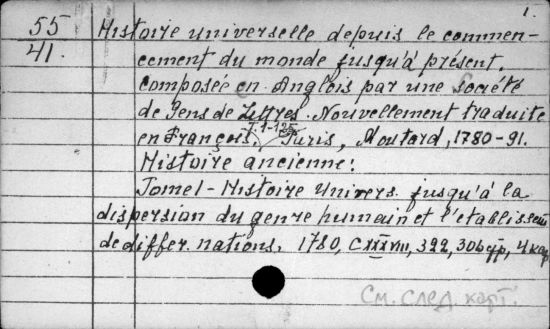 1.
55
41.
Histoire universelle depuis le commen-
cement du monde jusqu'à présent,
composée en Anglois par une Société
de Gens de Lettres. Nouvellement traduite
T. 1-125
en François. Paris, Moutard, 1780-91.
Histoire ancienne:
Tome 1 - Histoire Univers. jusqu'à la
dispersion du genre humain et l'etablissem
de differ. nations. 1780, CXXXVIII, 322, 306 стр, 4 кар
См. след. карт.